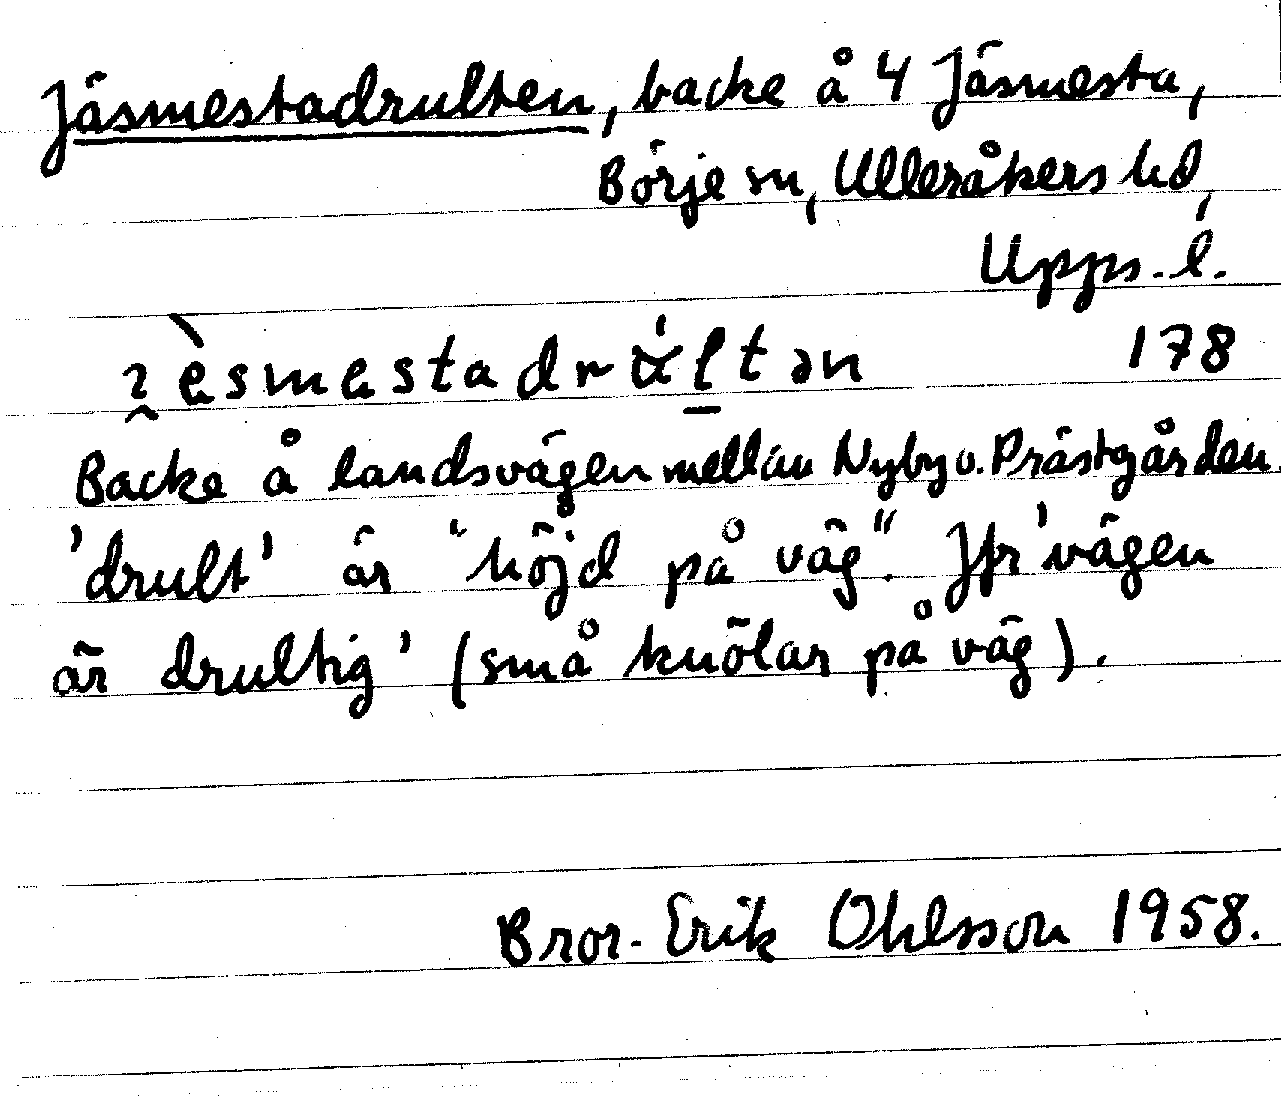 Jäsmestadrulten, backe å 4 Jäsmesta,
Börje sn, Ulleråkers hd,
Upps. l.
178
Backe å landsvägen mellan Nyby o. Prästgården.
'drult' är "höjd på väg". Jfr 'vägen
är drultig' (små knölar på väg).
Bror-Erik Ohlsson 1958.